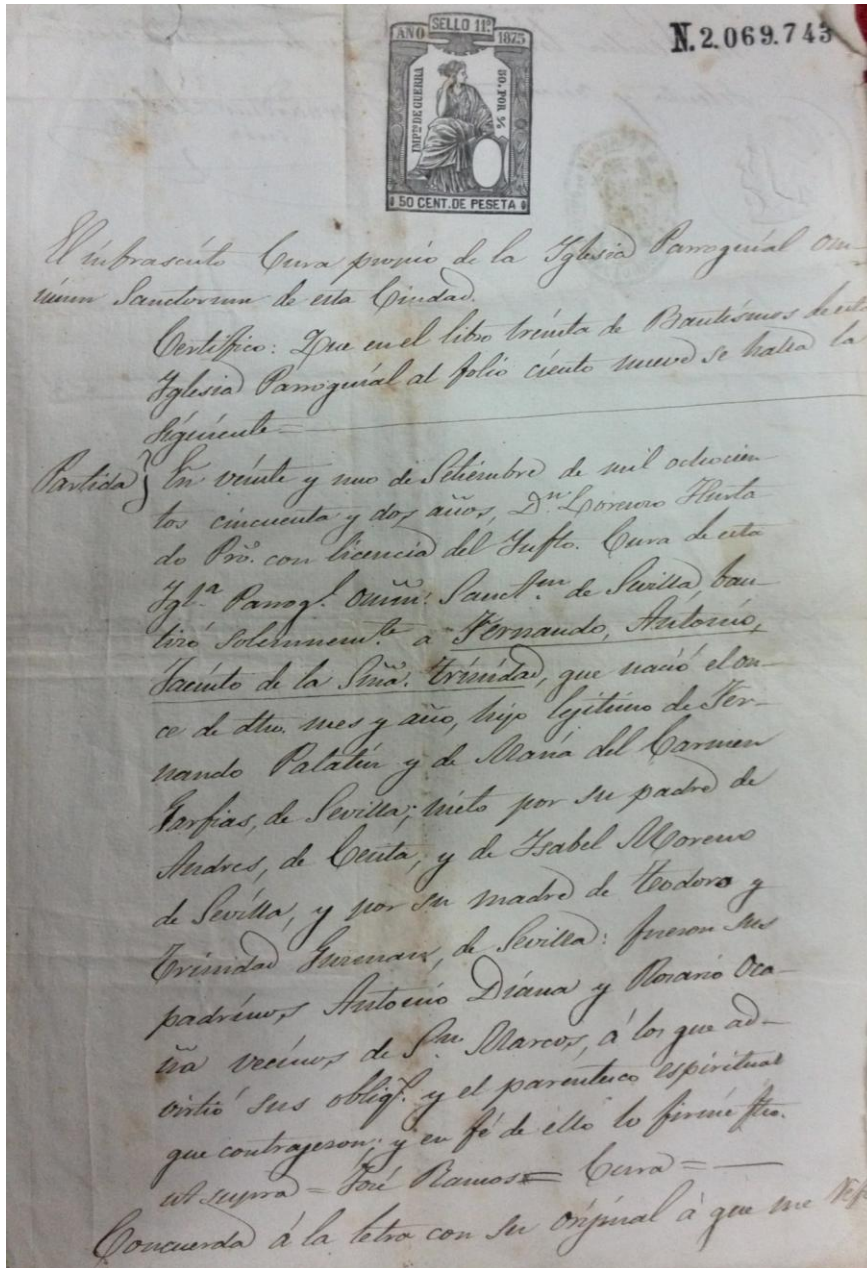 SELLO 11º
AÑO 1875
N. 2.069.743
IMPTO. DE GUERRA
50. POR %
50 CENT. DE PESETA
El infrascrito Cura propio de la Yglesia Parroquial Om-
nium Sanctorum de esta Ciudad.
Certifico: Que en el libro treinta de Bautismos de esta
Yglesia Parroquial al folio ciento nueve se halla la
siguiente=
Partida} En veinte y uno de Setiembre de mil ochocien
tos cincuenta y dos años, Dn. Lorenzo Hurta
do Pro. con licencia del Cura de esta
Yglª. Parroql. Omm. Sanctm. de Sevilla, bau-
tizó solemnemte. a Fernando, Antonio,
Jacinto de la Sma. Trinidad, que nació el on-
ce de dho. mes y año, hijo lejitimo de Fer-
nando Palatin y de Maria del Carmen
Garfias, de Sevilla; nieto por su padre de
Andres, de Ceuta, y de Ysabel Moreno
de Sevilla, y por su madre de Teodoro y
Trinidad de Sevilla: fueron sus
padrinos Antonio Diana y Rosario Oca-
ña vecinos de Sn. Marcos, á los que ad-
virtió sus obligs. y el parentesco espiritual
que contrajeron; y en fé de ello lo firmé fho.
ut supra = José Ramos = Cura =
Concuerda á la letra con su orijinal á que me